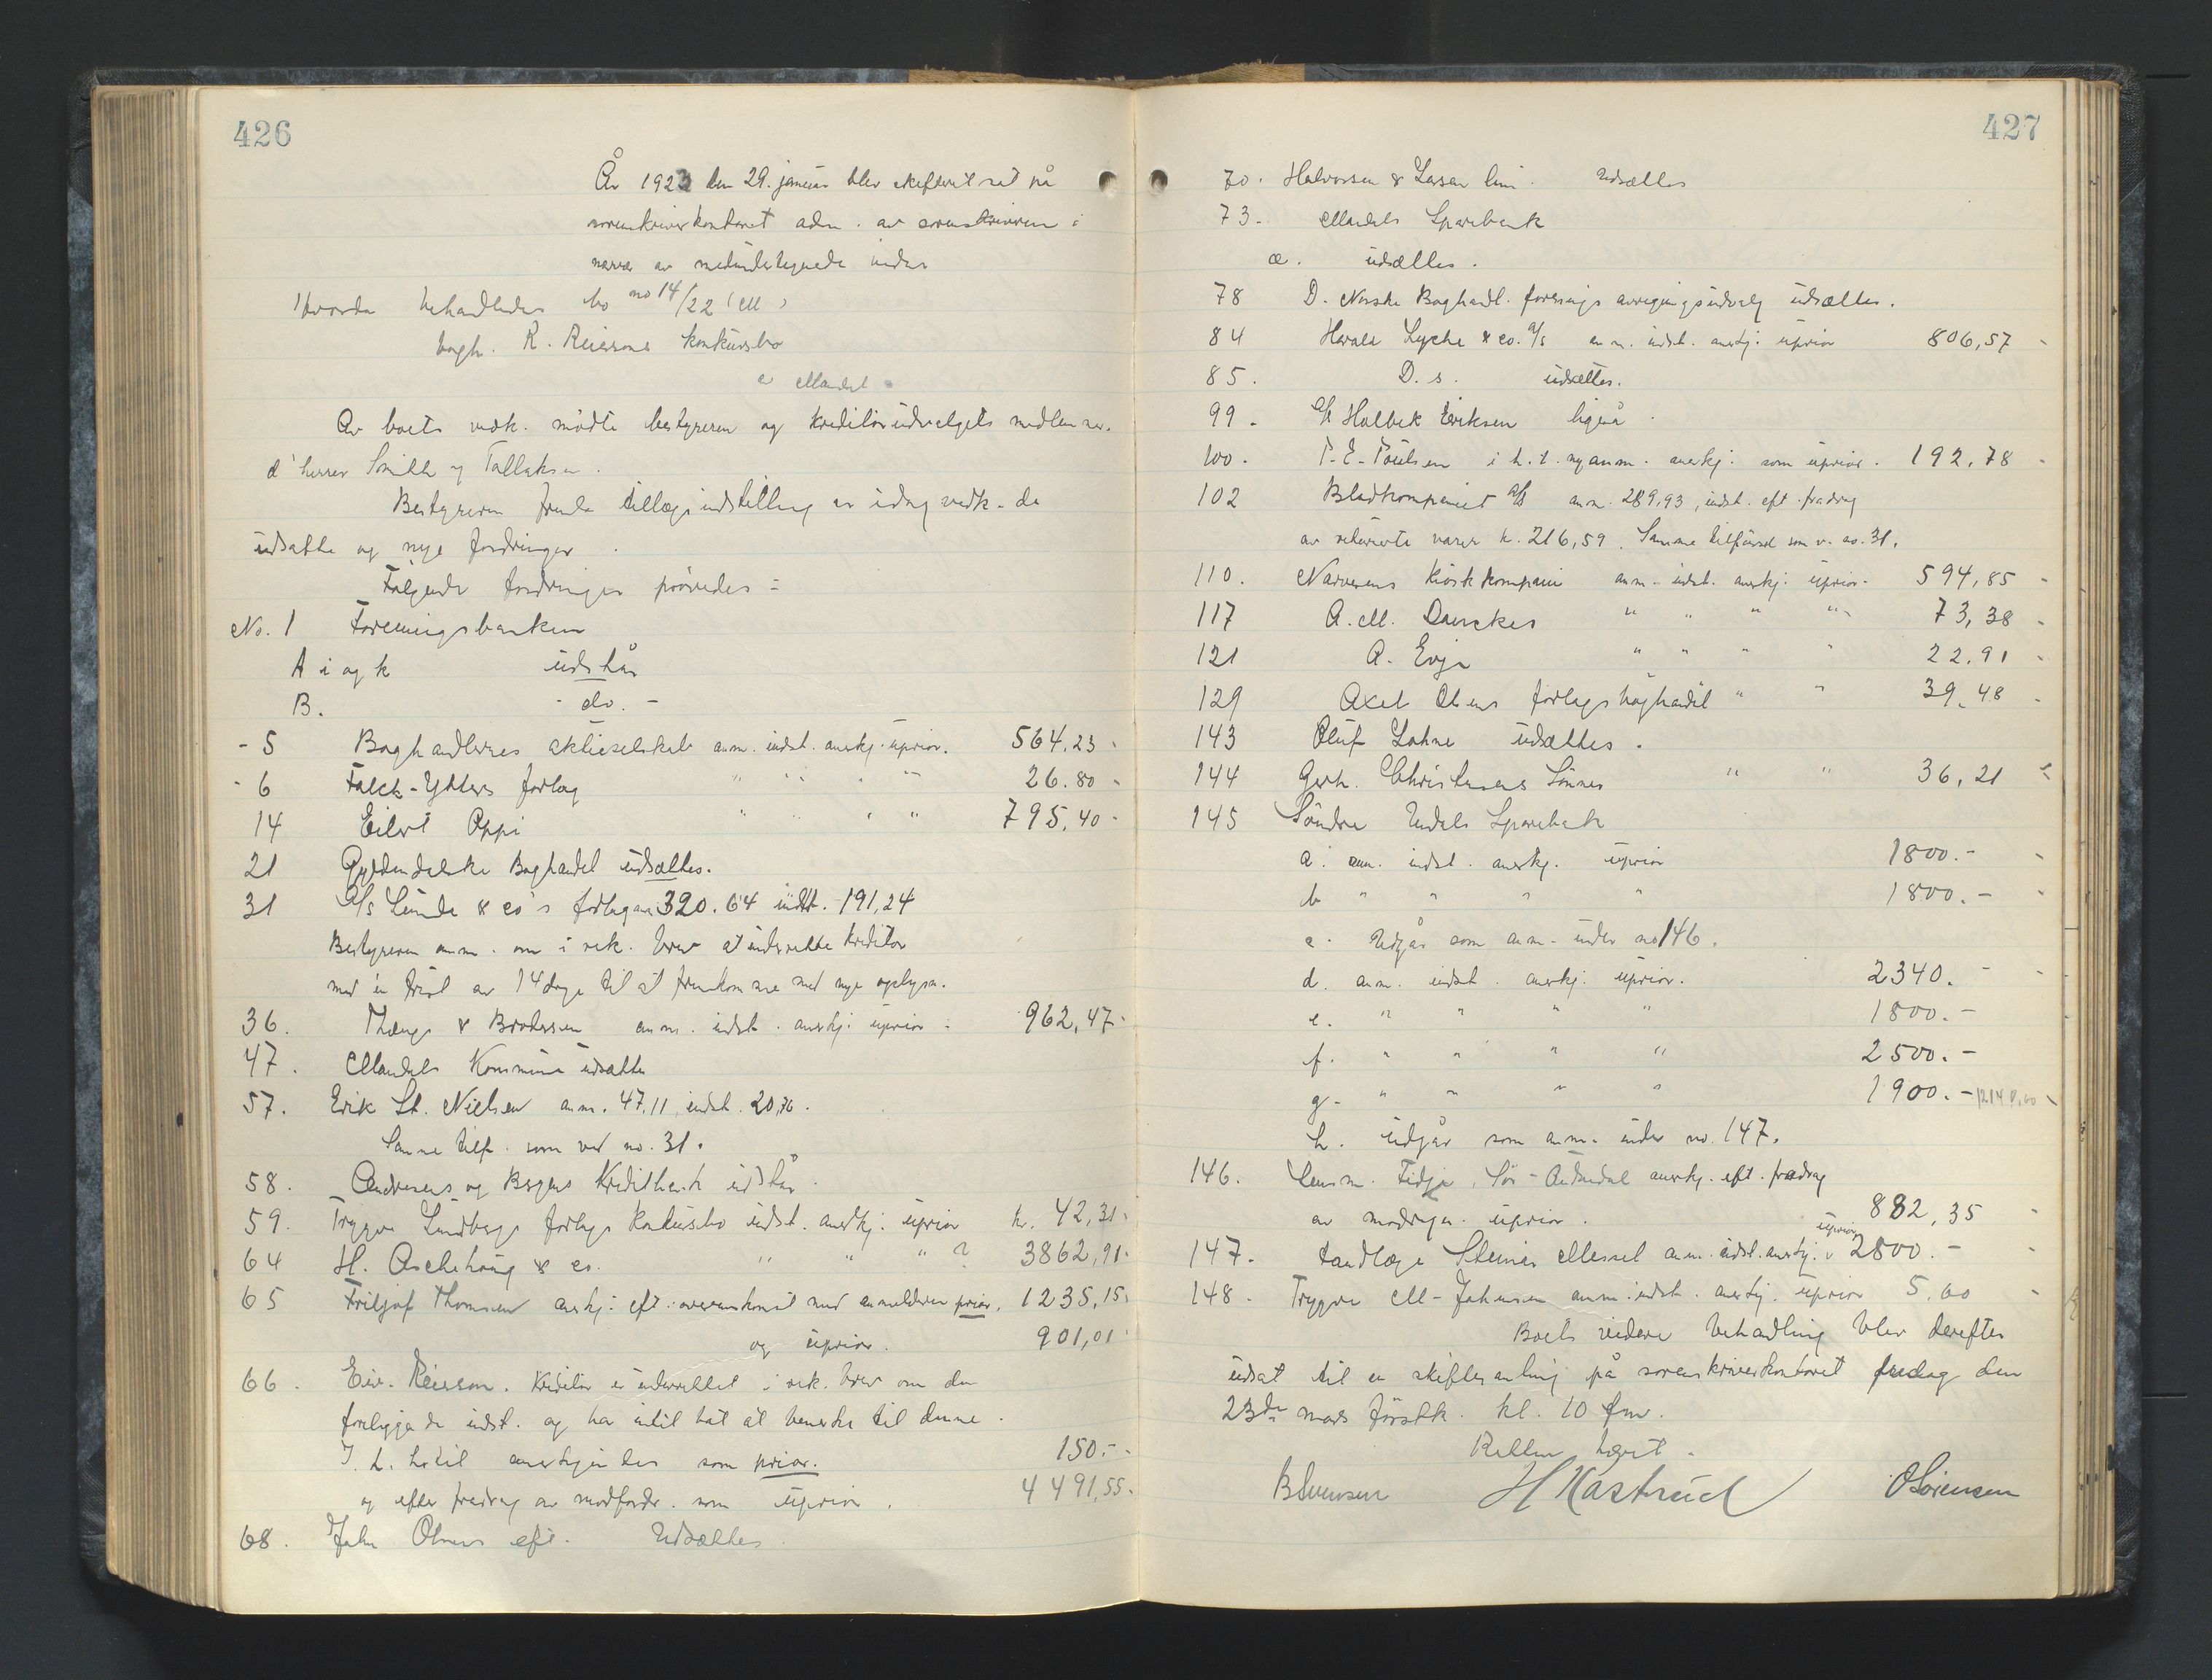 426
År 1923 den 29. januar blev skifterit sat på
sorenskriverkontoret adm. av sorenskriveren i
nærvær av medundertegnede vidner
Hvorda behandledes bo no 14/22 (M)
bogh. R. Reiersons konkursbo
i Mandal.
Av boets vedk. mødte bestyreren og kreditorudvalgets medlemmer.
d'herrer Smith og Tallaksen.
Bestyreren freml. tillægsindstilling av idag vedk. de
udsatte og nye fordringer.
Følgende fordringer prøvedes:
No. 1 Foreningsbanken
A i og k udstår
B. - do. -
- 5 Boghandlernes aktieselskab anm. indst. anerkj. uprior. 564,23
- 6 Falck-Ytters forlag " " " " 26.80
14 Eilert Oppi " " " " 795,40
21 Gyldendalske Boghandel udsættes.
31 A/s Lunde & co's forlag anm. 320.64 indst. 191,24
Bestyreren anm. om i rek. brev at underrette kreditor
med en frist av 14 dage til at fremkomme med nye oplysn.
36. Thænge & Brodersen anm. indst. anerkj. uprior. 962,47
47. Mandals Kommune udsættes
57. Erik St. Nielsen anm. 47,11 indst. 20,76.
Samme tilf. som ved no. 31.
58. Andresens og Bergens Kreditbank udstår.
59. Trygve Lundbergs forlags konkursbo indst. anerkj. uprior kr. 42,31
64 H. Aschehoug & co. " " " " 3862,91
65 Fritjof Thomsen anerkj. eft. overenskomst med anmelderen prior. 1235,15
og uprior. 901,01
66. Eiv. Reierson. Kreditor er underrettet i rek. brev om den
foreliggende indst. og har intet hat at bemerke til denne.
I. h. hertil anerkjendes som prior. 150.-
og efter fradrag av modfordr. som uprior. 4491,55
68. John Olsens eft. Udsættes.
427
70. Halvorsen & Larsen lim. udsættes
73. Mandals Sparebank
a. udsættes.
78 D. Norske Boghandl. forenings avregningsudvalg udsættes.
84 Harald Lyche & co. A/s anm. indst. anerkj. uprior 806,57
85. D. s. udsættes.
99. A/s Holbæk Eriksen ligeså.
100. P. E. Poulsen i h. t. ny anm. anerkj. som uprior. 192,78
102 Bladkompaniet A/s anm. 289,93, indst. eft. fradrag
av returnerte varer k. 216,59. Samme tilførsel som v. no. 31.
110. Narvesens Kioskkompani anm. indst. anerkj. uprior. 594,85
117 A. M. Danckes " " " " 73,38
121 A. Evje " " " " 22,91
129 Axel Olsens forlagsboghandel " " 39,48
143 Oluf Lohne udsættes.
144 Gerh. Christensens Sønner " " 36,21
145 Søndre Undals Sparebank
a. anm. indst. anerkj. uprior 1800.-
b " " " " 1800.-
c. Udgår som anm. under no 146.
d. anm. indst. anerkj. uprior. 2340.-
e. " " " " 1800.-
f. " " " " 2500.-
g. " " " " 1900.-
h. udgår som anm. under no. 147.
146. Lensm. Fidje, Sør-Audnedal anerkj. eft. fradrag
av modregn. uprior. 882,35
147. tandlæge Steinar Messel anm. indst. anerkj. uprior 2800.-
148. Trygve M. Johnsen anm. indst. anerkj. uprior 5,60
Boets videre behandling blev derefter
udsat til en skiftesamling på sorenskriverkontoret fredag den
23de mars førstk. kl. 10 fm.
Retten hævet.
B Svensen H Kastrud O Sørensen